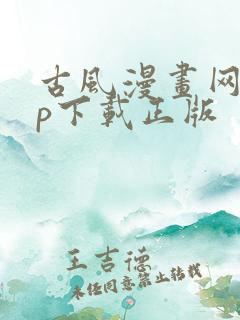 古風漫畫网
p下載正版
王吉德
未经同意禁止转载